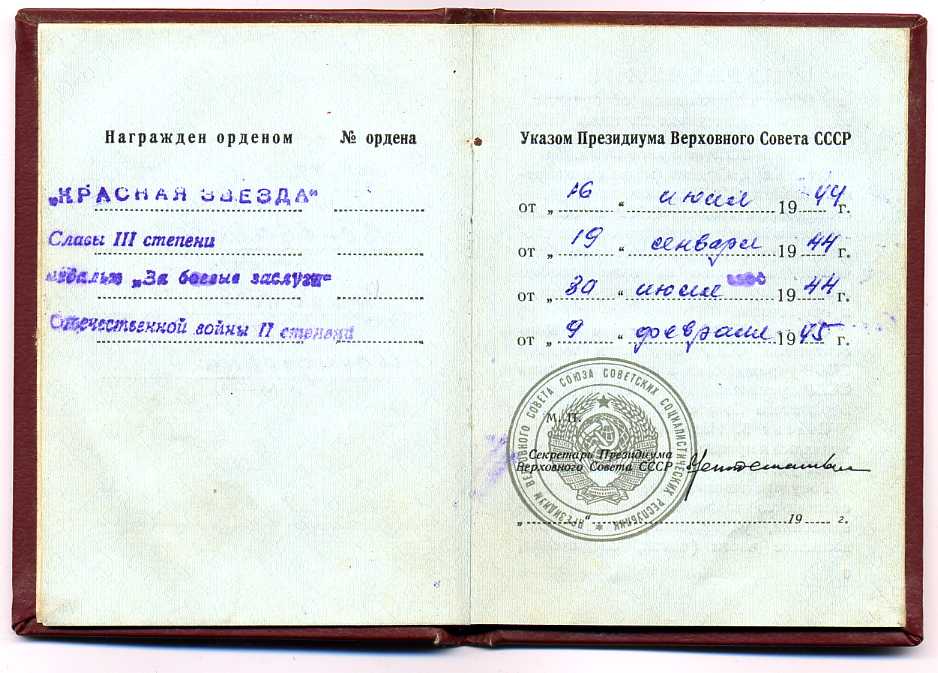 Награжден орденом № ордена
„КРАСНАЯ ЗВЕЗДА“
Славы III степени
медалью „За боевые заслуги“
Отечественной войны II степени
Указом Президиума Верховного Совета СССР
от „ 16 “ июля 1944 г.
от „ 19 “ января 1944 г.
от „ 30 “ июля 1944 г.
от „ 9 “ февраля 1945 г.
ПРЕЗИДИУМ ВЕРХОВНОГО СОВЕТА СОЮЗА СОВЕТСКИХ СОЦИАЛИСТИЧЕСКИХ РЕСПУБЛИК
М. П.
Секретарь Президиума
Верховного Совета СССР
„ “ 19 г.